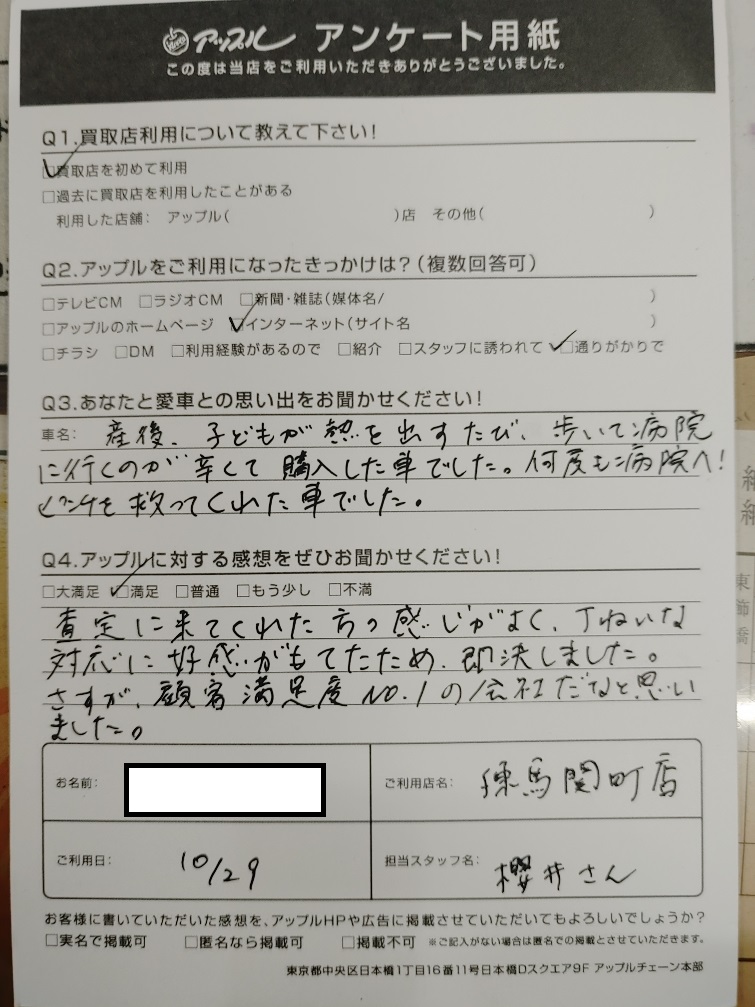 アップル アンケート用紙
この度は当店をご利用いただきありがとうございました。
Q1.買取店利用について教えて下さい!
□買取店を初めて利用
□過去に買取店を利用したことがある
利用した店舗: アップル( )店 その他( )
Q2.アップルをご利用になったきっかけは?(複数回答可)
□テレビCM □ラジオCM □新聞・雑誌(媒体名/ )
□アップルのホームページ □インターネット(サイト名 )
□チラシ □DM □利用経験があるので □紹介 □スタッフに誘われて □通りがかりで
Q3.あなたと愛車との思い出をお聞かせください!
車名: 産後、子どもが熱を出すたび、歩いて病院
に行くのが辛くて購入した車でした。何度も病院へ!
ピンチを救ってくれた車でした。
Q4.アップルに対する感想をぜひお聞かせください!
□大満足 □満足 □普通 □もう少し □不満
査定に来てくれた方の感じがよく、丁ねいな
対応に好感がもてたため、即決しました。
さすが、顧客満足度No.1の会社だなと思い
ました。
お名前: ご利用店名: 練馬関町店
ご利用日: 10/29 担当スタッフ名: 櫻井さん
お客様に書いていただいた感想を、アップルHPや広告に掲載させていただいてもよろしいでしょうか?
□実名で掲載可 □匿名なら掲載可 □掲載不可 ※ご記入がない場合は匿名での掲載とさせていただきます。
東京都中央区日本橋1丁目16番11号日本橋Dスクエア9F アップルチェーン本部